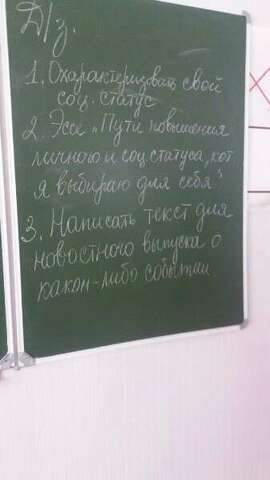 Д/з.
1. Охарактеризовать свой
соц. статус
2. Эссе „Пути повышения
личного и соц. статуса, кот.
я выбираю для себя"
3. Написать текст для
новостного выпуска о
каком-либо событии.